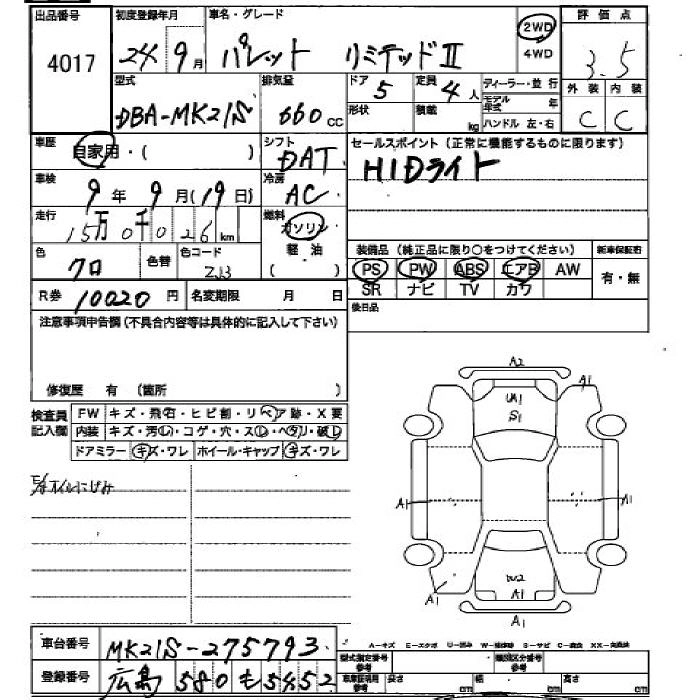 出品番号 初度登録年月 車名・グレード 評価点
4017 24年 9月 パレット リミテッドⅡ 2WD 4WD 3.5
型式 排気量 ドア 定員 ディーラー・並行 外装 内装
DBA-MK21S 660cc 5 4人 モデル年式 年 C C
形状 積載 kg ハンドル 左・右
車歴 自家用・( ) シフト DAT セールスポイント (正常に機能するものに限ります)
HIDライト
車検 9年 9月(19日) 冷房 AC
走行 15万0千026km 燃料 ガソリン 軽油 ( )
色 クロ 色替 色コード ZJ3
装備品 (純正品に限り○をつけてください) 新車保証書
PS PW ABS エアB AW 有・無
SR ナビ TV カワ
R券 10020円 名変期限 月 日 後日品
注意事項申告欄 (不具合内容等は具体的に記入して下さい)
修復歴 有 (箇所 )
検査員記入欄 FW キズ・飛石・ヒビ割・リペア跡・X要
内装 キズ・汚レ・コゲ・穴・スレ・ヘタリ・破レ
ドアミラー キズ・ワレ ホイール・キャップ キズ・ワレ
A2
A1
U1
S1
A1 A1
W2
A1
A1 A1
車台番号 MK21S-275793
A-キズ E-エクボ U-凹み W-補修跡 S-サビ C-腐食 XX-交換済
登録番号 広島 580 も 5452
型式指定番号 参考 類別区分番号 参考
車庫証明用 参考 長さ cm 幅 cm 高さ cm